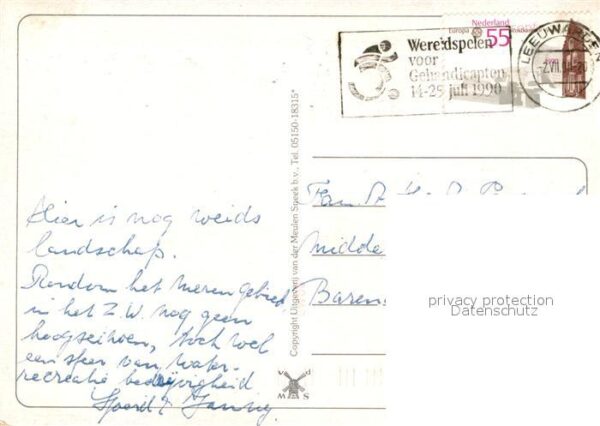 Nederland
Europa
55
Wereldspelen
voor
Gehandicapten
14-25 juli 1990
LEEUWARDEN
Copyright Uitgeverij van der Meulen Sneek b.v., Tel. 05150-18315*
Hier is nog weids
landschap.
Rondom het meren gebied
in het Z.W. nog geen
hoogseizoen, toch wel
een sfeer van water-
recreatie bedrijvigheid
Fam.
Midde
Baren
privacy protection
Datenschutz